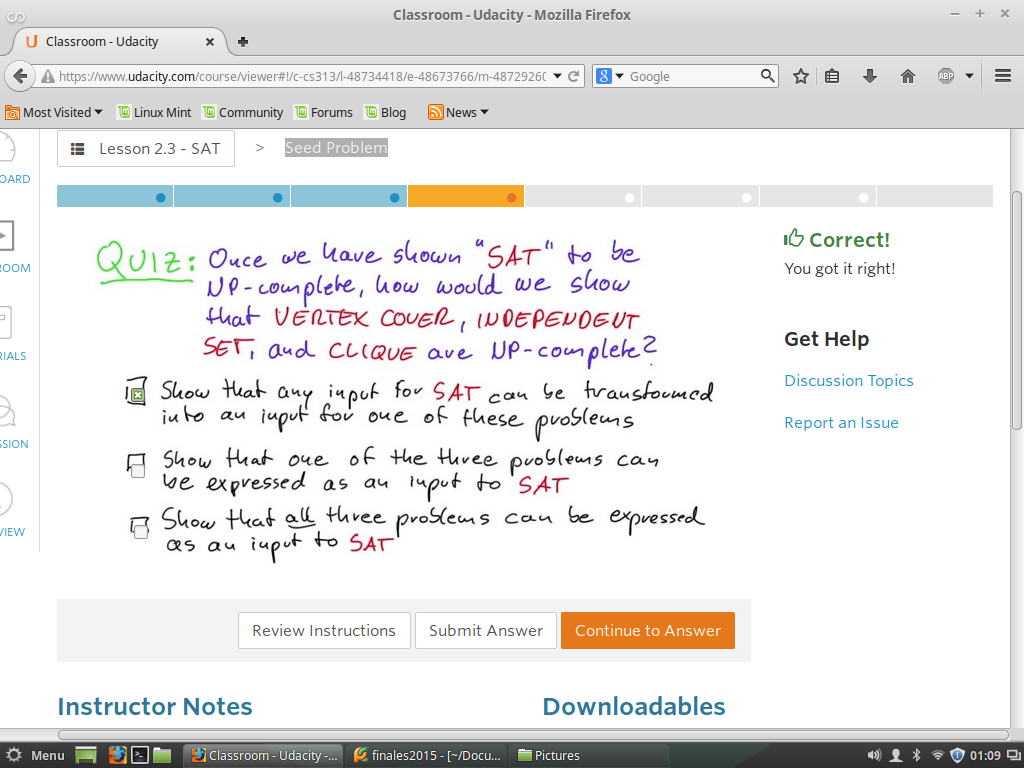 Classroom - Udacity - Mozilla Firefox
Classroom - Udacity
https://www.udacity.com/course/viewer#!/c-cs313/l-48734418/e-48673766/m-4872926
Google
ABP
Most Visited
Linux Mint
Community
Forums
Blog
News
Lesson 2.3 - SAT > Seed Problem
OARD
ROOM
RIALS
SSION
VIEW
QUIZ: Once we have shown "SAT" to be
NP-complete, how would we show
that VERTEX COVER, INDEPENDENT
SET, and CLIQUE are NP-complete?
Show that any input for SAT can be transformed
into an input for one of these problems
Show that one of the three problems can
be expressed as an input to SAT
Show that all three problems can be expressed
as an input to SAT
Correct!
You got it right!
Get Help
Discussion Topics
Report an Issue
Review Instructions
Submit Answer
Continue to Answer
Instructor Notes
Downloadables
Menu
Classroom - Udacity -...
finales2015 - [~/Docu...
Pictures
01:09